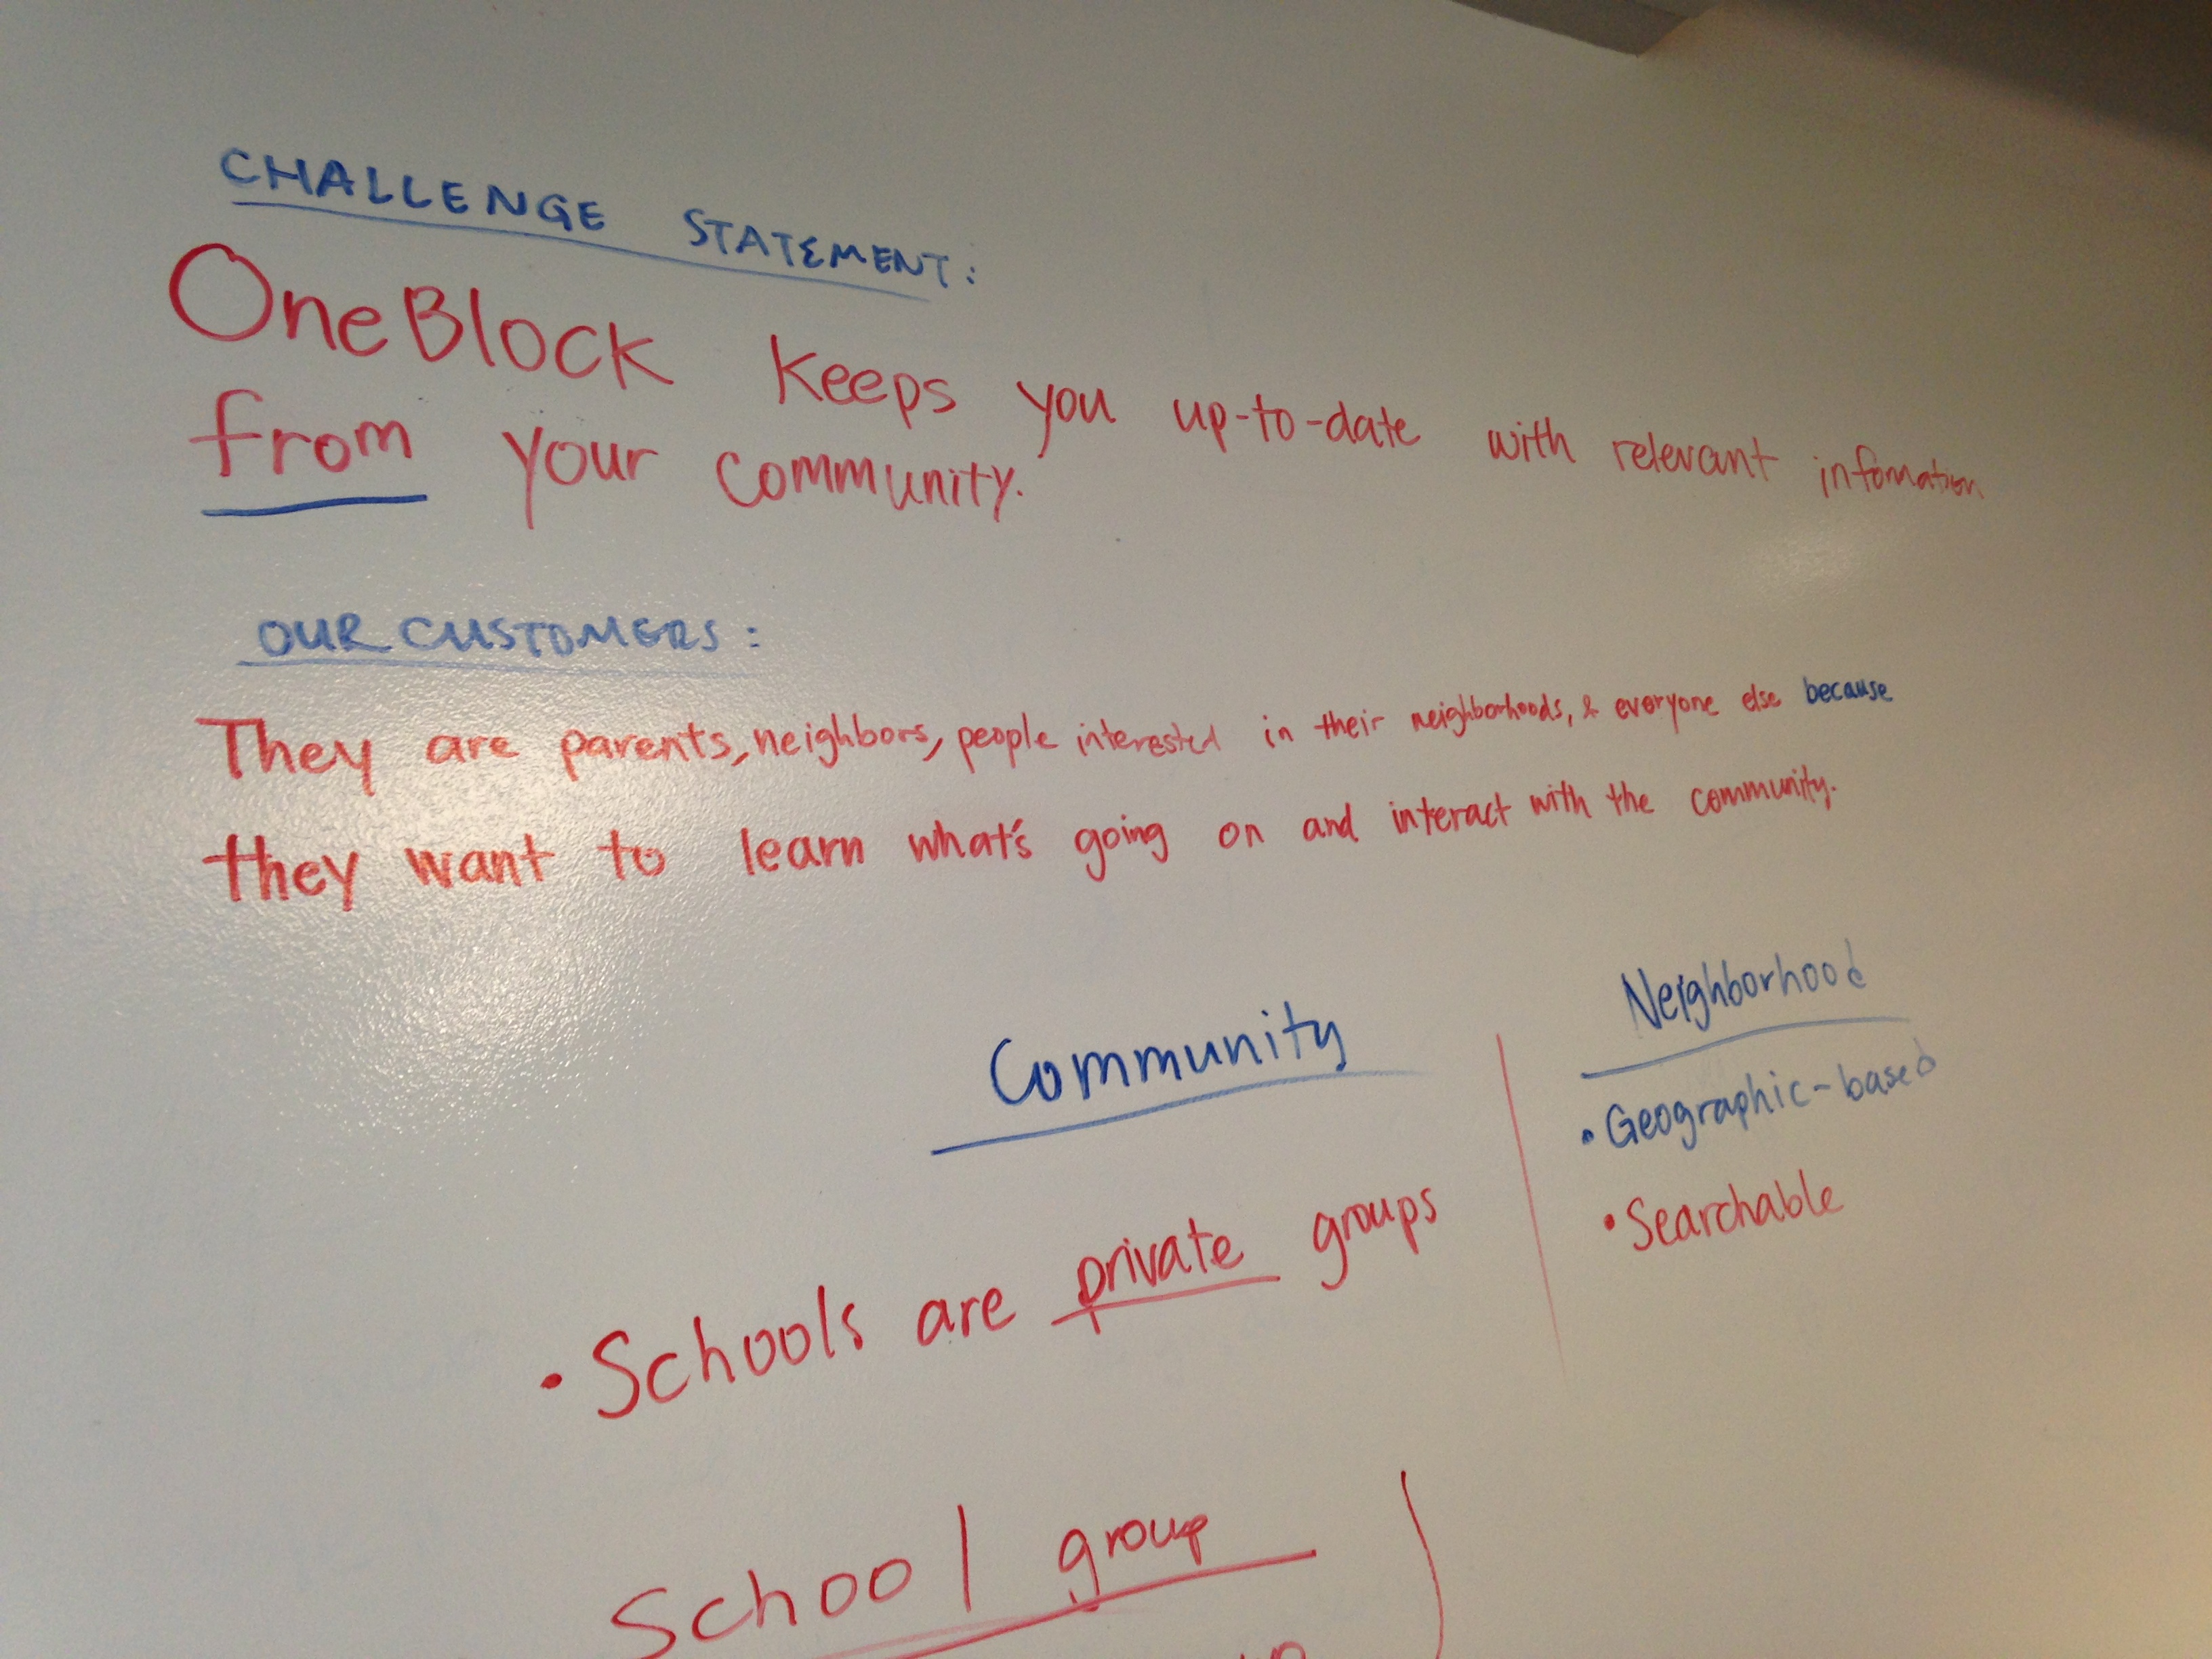 CHALLENGE STATEMENT:
OneBlock keeps you up-to-date with relevant infomation
from your community.
OUR CUSTOMERS:
They are parents, neighbors, people interested in their neighborhoods, & everyone else because
they want to learn what's going on and interact with the community.
Community
• Schools are private groups
Neighborhood
• Geographic-based
• Searchable
School group